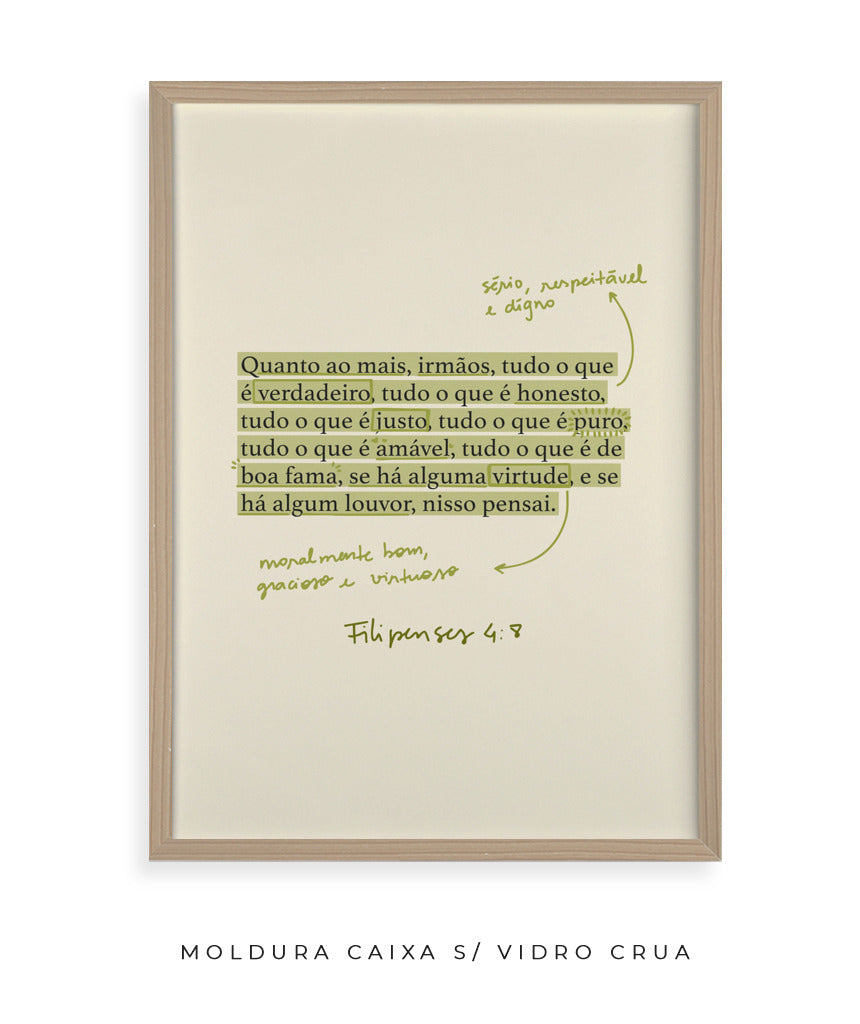 sério, respeitável
e digno
Quanto ao mais, irmãos, tudo o que
é verdadeiro, tudo o que é honesto,
tudo o que é justo, tudo o que é puro,
tudo o que é amável, tudo o que é de
boa fama, se há alguma virtude, e se
há algum louvor, nisso pensai.
moralmente bom,
gracioso e virtuoso
Filipenses 4:8
MOLDURA CAIXA S/ VIDRO CRUA